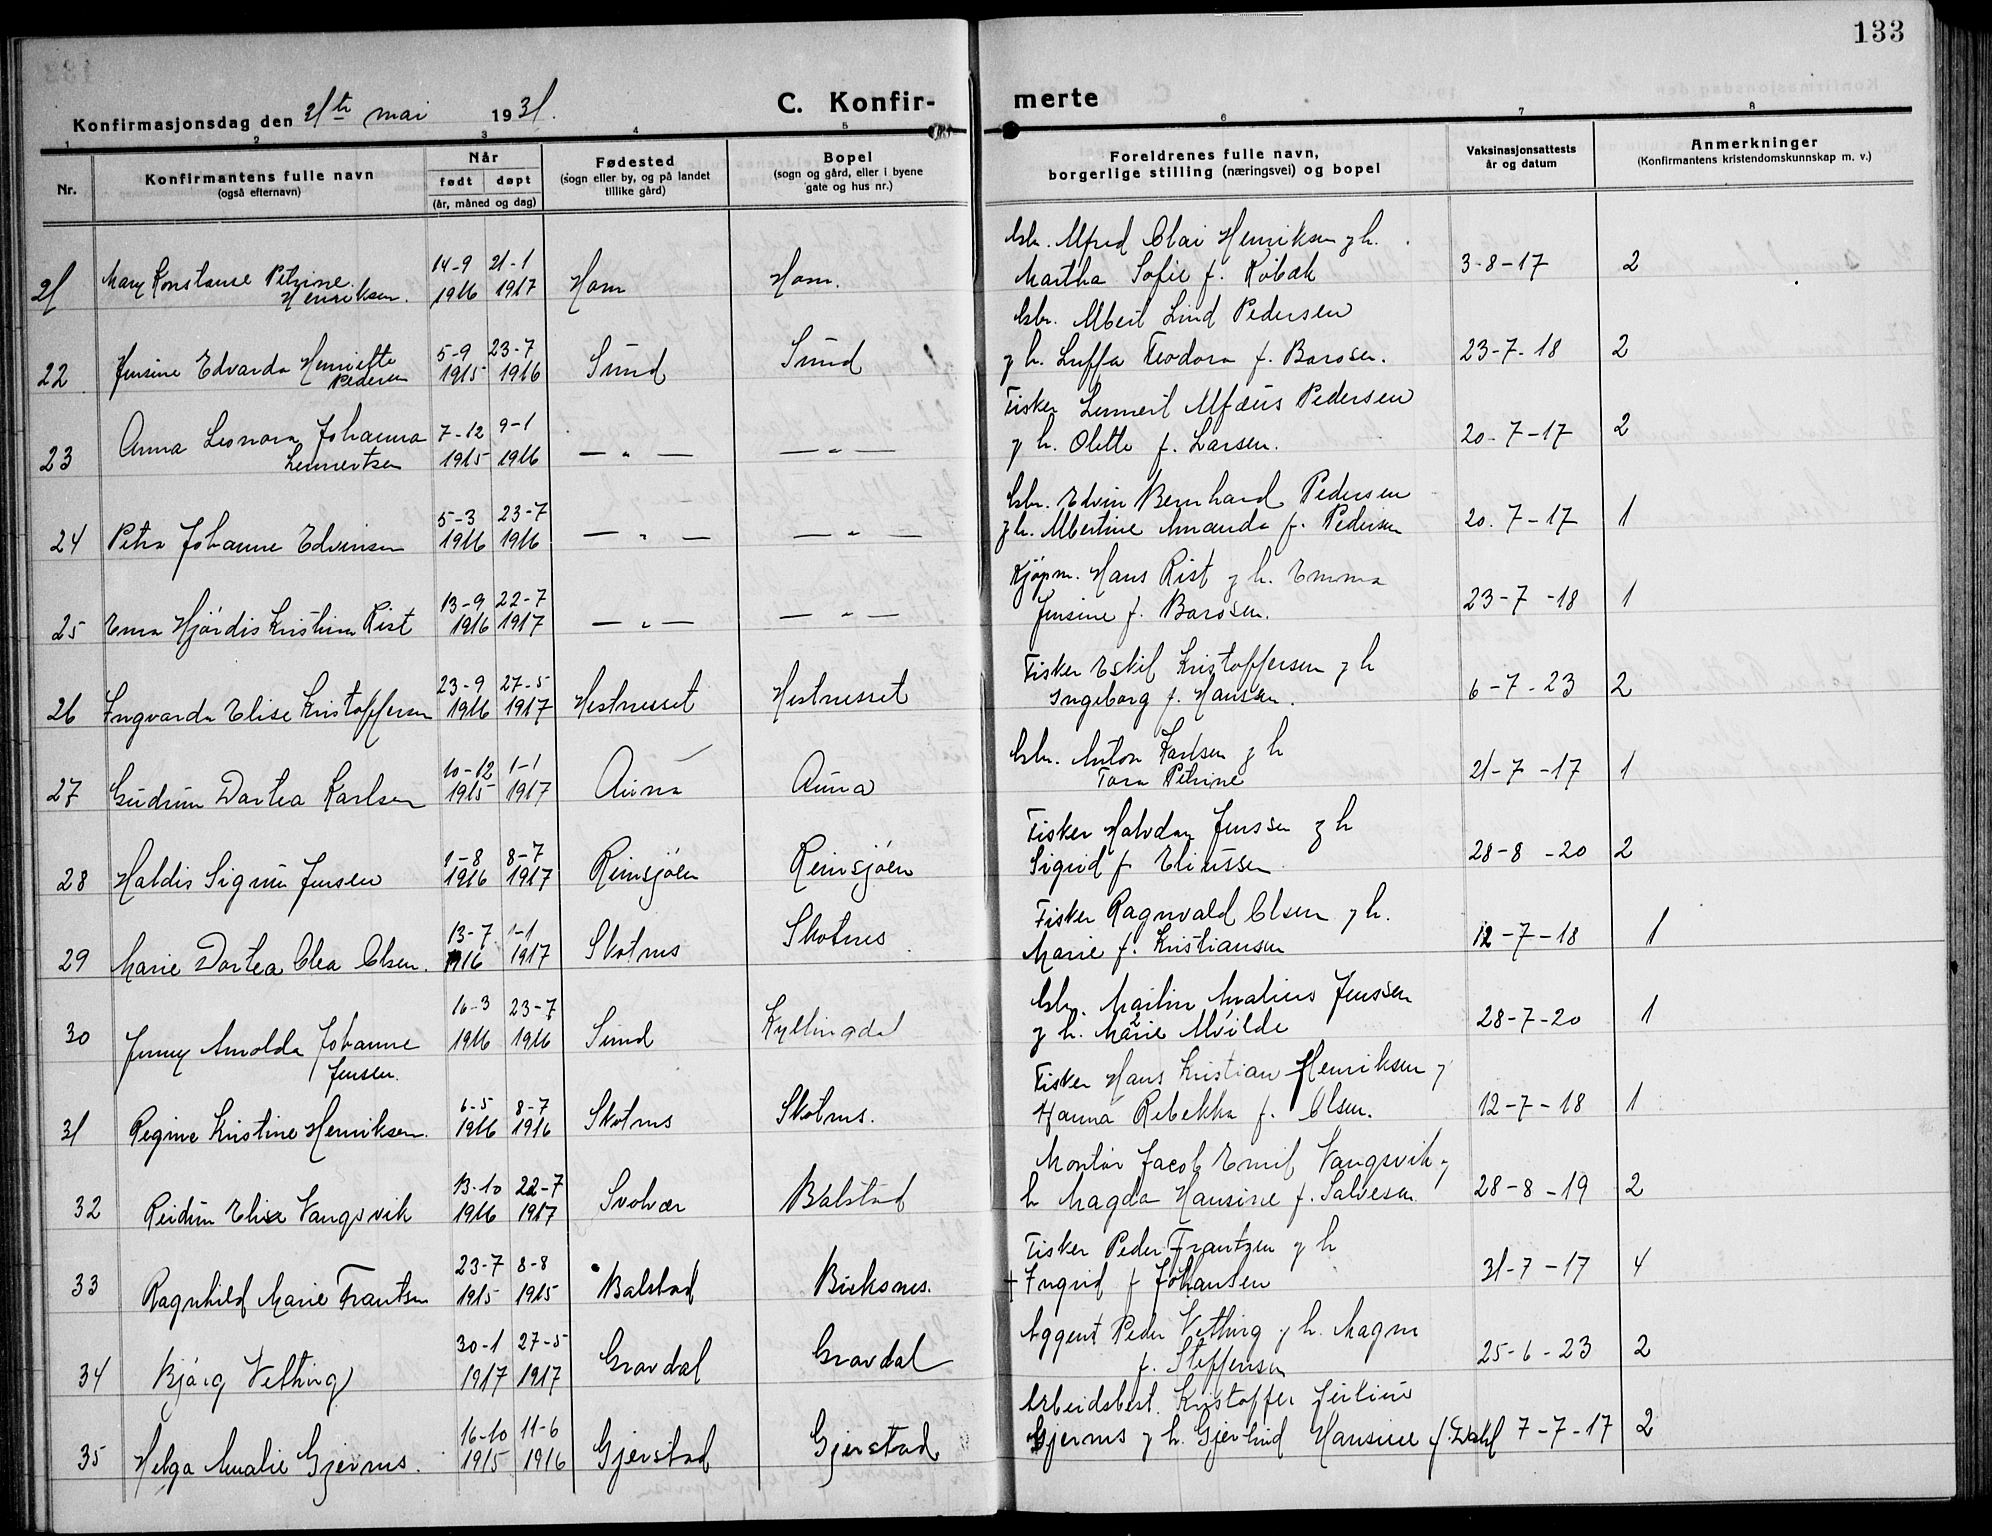 133
Konfirmasjonsdag den 21te mai 1931.
C. Konfir-
merte
1 2 3 4 5 6 7 8
Nr.
Konfirmantens fulle navn
(også efternavn)
Når
født døpt
(år, måned og dag)
Fødested
(sogn eller by, og på landet
tillike gård)
Bopel
(sogn og gård, eller i byene
gate og hus nr.)
Foreldrenes fulle navn,
borgerlige stilling (næringsvei) og bopel
Vaksinasjonsattests
år og datum
Anmerkninger
(Konfirmantens kristendomskunnskap m. v.)
Gbr. Alfred Olai Henriksen g h.
14-9 21-1
21 Mary Konstanse Petrine 1916 1917 Horn Horn. Martha Sofie f. Robæk 3-8-17 2
Henriksen.
Gbr. Albert Lind Pedersen
5-9 23-7
22 Jensine Edvarda Henriette 1915 1916 Sund Sund g h. Luffa Teodora f. Barosen. 23-7-18 2
Pedersen
Fisker Lennert Alfæus Pedersen
7-12 9-1
23 Anna Leonora Johanna 1915 1916 — " — — " — g h. Olette f. Larsen. 20-7-17 2
Lennertsen
Gbr. Edvin Bernhard Pedersen
5-3 23-7
24 Petra Johanne Edvinsen 1916 1916 — " — — " — g h. Albertine Amanda f. Pedersen 20-7-17 1
Kjøpm. Hans Rist g h. Emma
13-9 22-7
25 Erna Hjørdis Kristina Rist 1916 1917 — " — — " — Jensine f. Barosen. 23-7-18 1
Fisker Eskil Kristoffersen g h
23-9 27-5
26 Ingvarda Elise Kristoffersen 1916 1917 Hestnesset Hestnesset Ingeborg f. Hansen. 6-7-23 2
Gbr. Anton Karlsen g h
10-12 1-1
27 Gudrun Dortea Karlsen 1915 1917 Auna Auna Tora Petrine 21-7-17 1
Fisker Halvdan Jenssen g h
1-8 8-7
28 Haldis Sigrun Jensen 1916 1917 Reinsjøen Reinsjøen Sigrid f Eliussen 28-8-20 2
Fisker Ragnvald Olsen g h.
13-7 1-1
29 Marie Dortea Olea Olsen. 1916 1917 Skotnes Skotnes Marie f. Kristiansen 12-7-18 1
Gbr. Martin Analius Jenssen
16-3 23-7
30 Jenny Arnolda Johanne 1916 1916 Sund Kyllingdal g h. Marie Alvilde 28-7-20 1
Jensen.
Fisker Hans Kristian Henriksen g
6-5 8-7
31 Regine Kristine Henriksen. 1916 1916 Skotnes Skotnes. Hanna Rebekka f. Olsen. 12-7-18 1
Montør Jacob Emil Vangsvik g
13-10 22-7
32 Reidun Elise Vangsvik 1916 1917 Svolvær Balstad h Magda Hansine f. Salvesen 28-8-19 2
Fisker Peder Frantzen g h
23-7 8-8
33 Ragnhild Marie Frantsen 1915 1915 Balstad Buksnes. + Ingrid f Johansen 31-7-17 4
Aggent Peder Vetting g h. Magna
30-1 27-5
34 Bjørg Vetting 1917 1917 Gravdal Gravdal f. Steffensen 25-6-23 2
Arbeidsbest. Kristoffer Julius
16-10 11-6
35 Helga Amalie Gjernes. 1915 1916 Gjerstad Gjerstad Gjernes g h. Gjertrud Hansine f. Dahl 7-7-17 2